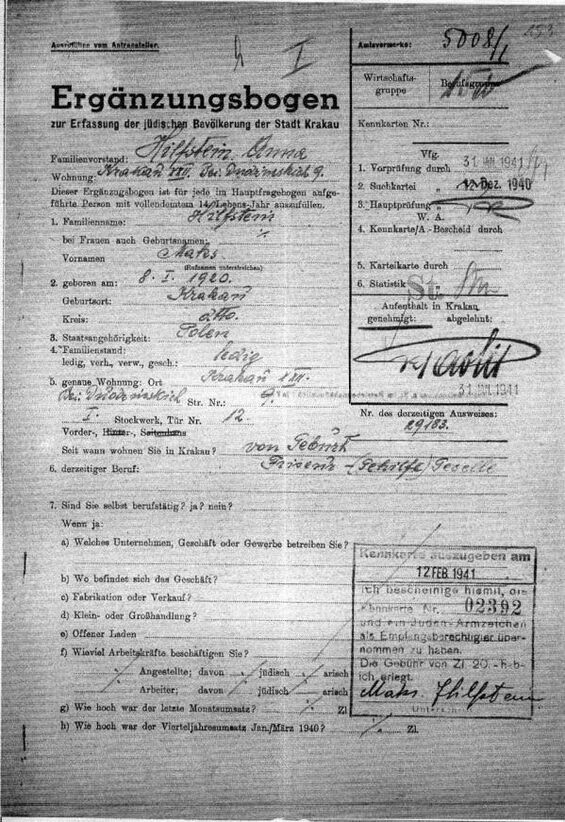 Ausfüllen vom Antragsteller.
I
Amtsvermerke: 5008/1
153
Wirtschaftsgruppe
Berufsgruppe
Kennkarten Nr.:
Ergänzungsbogen
zur Erfassung der jüdischen Bevölkerung der Stadt Krakau
Familienvorstand: Hilfstein Anna
Wohnung: Krakau XXI. 9.
Dieser Ergänzugsbogen ist für jede im Hauptfragebogen aufgeführte
Person mit vollendetem 14 Lebens-Jahr auszufüllen.
1. Familienname: Hilfstein
bei Frauen auch Geburtsnamen:
Vornamen Maks
(Rufnamen unterstreichen)
2. geboren am: 8. I. 1920.
Geburtsort: Krakau
Kreis: dtto.
3. Staatsangehörigkeit: Polen
4. Familienstand:
ledig, verh., verw., gesch.: ledig
5. genaue Wohnung: Ort Krakau XXI.
Str. Nr.: 9.
I. Stockwerk, Tür Nr. 12.
Vorder-, Hinter-, Seitenhaus
Seit wann wohnen Sie in Krakau? von Geburt
6. derzeitiger Beruf: (Gehilfe) Geselle
Vfg.
1. Vorprüfung durch 31 JAN. 1941
2. Suchkartei 12 Dez. 1940
3. Hauptprüfung
W. A.
4. Kennkarte/A - Bescheid durch
5. Karteikarte durch
6. Statistik St.
Aufenthalt in Krakau
genehmigt: abgelehnt:
31 JAN. 1941
Nr. des derzeitigen Ausweises:
29183.
7. Sind Sie selbst berufstätig? ja? nein?
Wenn ja:
a) Welches Unternehmen, Geschäft oder Gewerbe betreiben Sie?
b) Wo befindet sich das Geschäft?
c) Fabrikation oder Verkauf?
d) Klein- oder Großhandlung?
e) Offener Laden
f) Wieviel Arbeitskräfte beschäftigen Sie?
Angestellte; davon jüdisch arisch
Arbeiter; davon jüdisch arisch
g) Wie hoch war der letzte Monatsumsatz? Zl
h) Wie hoch war der Vierteljahresumsatz Jan./März 1940? Zl.
Kennkarte auszugeben am
12. FEB. 1941
Ich bescheinige hiemit, die
Kennkarte Nr. 02392
und ein Juden-Armzeichen
als Empfangsberechtigter übernommen
zu haben.
Die Gebühr von Zl 20.- hab
ich erlegt.
Maks Hilfstein